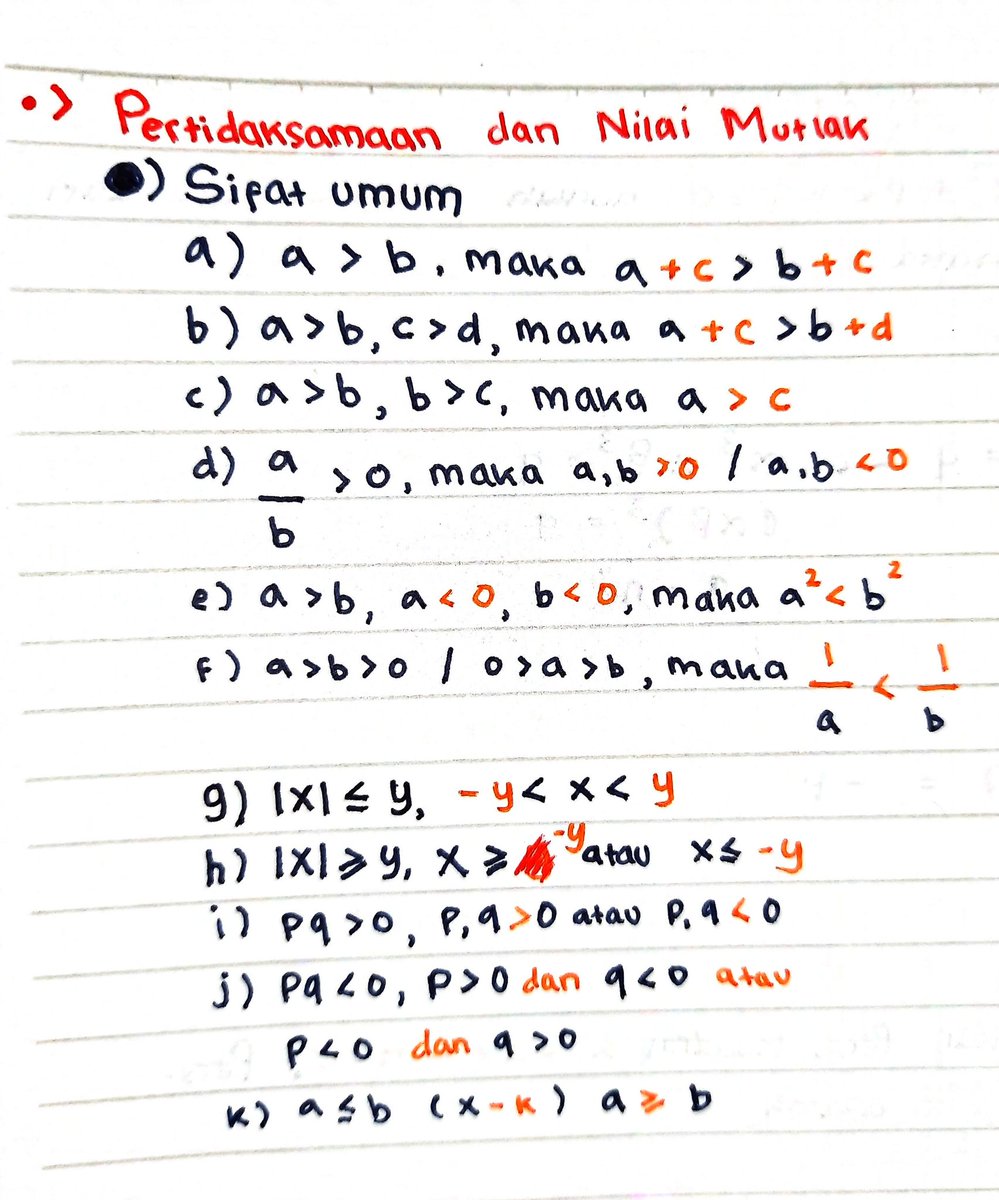 •> Pertidaksamaan dan Nilai Mutlak
●) Sifat umum
a) a > b, maka a + c > b + c
b) a > b, c > d, maka a + c > b + d
c) a > b, b > c, maka a > c
d) a/b > 0, maka a, b > 0 / a, b < 0
e) a > b, a < 0, b < 0, maka a² < b²
f) a > b > 0 / 0 > a > b, maka 1/a < 1/b
g) |x| ≤ y, -y < x < y
h) |x| ≥ y, x ≥ -y atau x ≤ -y
i) pq > 0, p, q > 0 atau p, q < 0
j) pq < 0, p > 0 dan q < 0 atau
p < 0 dan q > 0
k) a ≤ b (x-k) a ≥ b